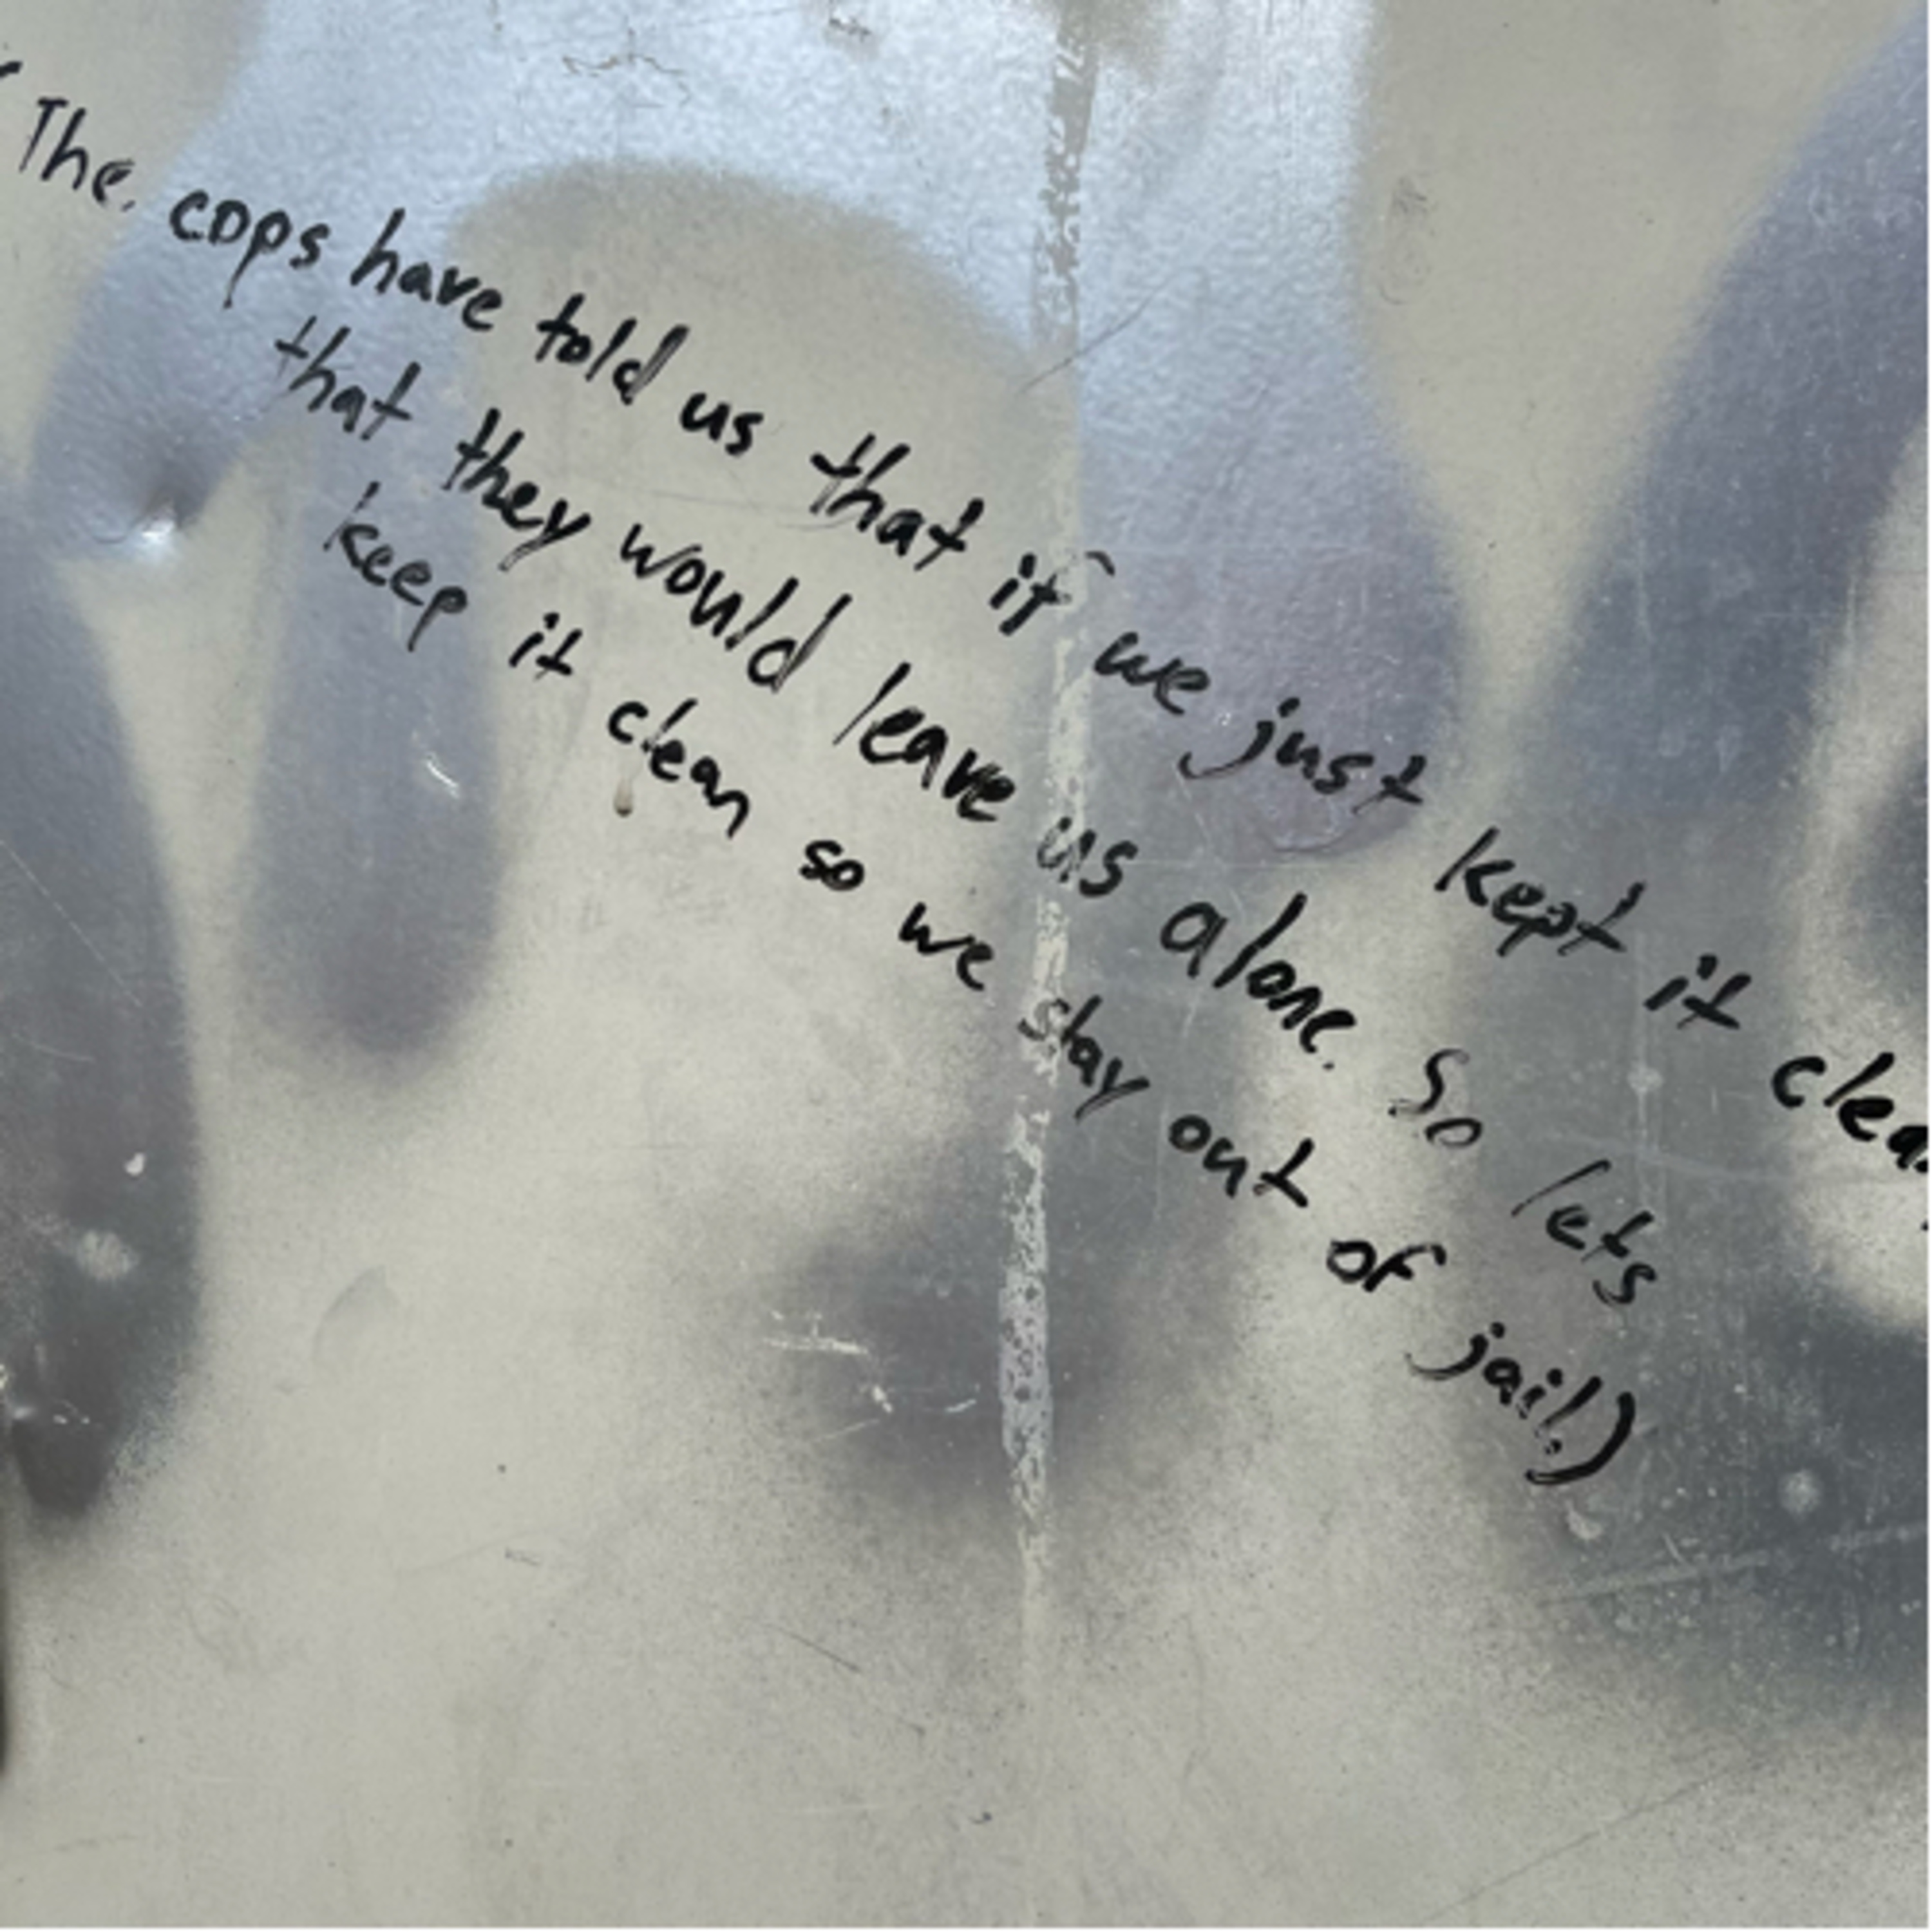 (The cops have told us that if we just kept it clea
that they would leave us alone. So lets
keep it clean so we stay out of jail.)